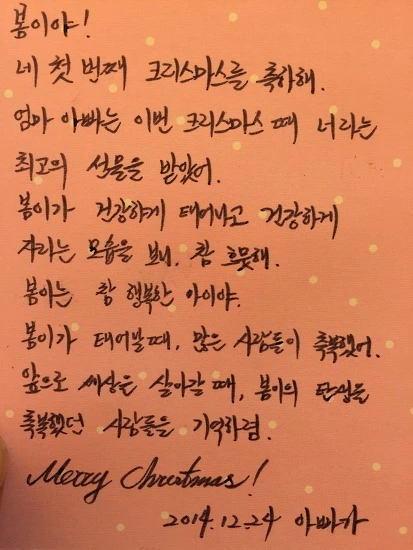 봉이야!
네 첫 번째 크리스마스를 축하해.
엄마 아빠는 이번 크리스마스 때 너라는
최고의 선물을 받았어.
봉이가 건강하게 태어나고 건강하게
자라는 모습을 보니, 참 흐뭇해.
봉이는 참 행복한 아이야.
봉이가 태어날 때, 많은 사람들이 축복했어.
앞으로 세상을 살아갈 때, 봉이의 탄생을
축복했던 사람들을 기억하렴.
Merry Christmas!
2014.12.24 아빠가